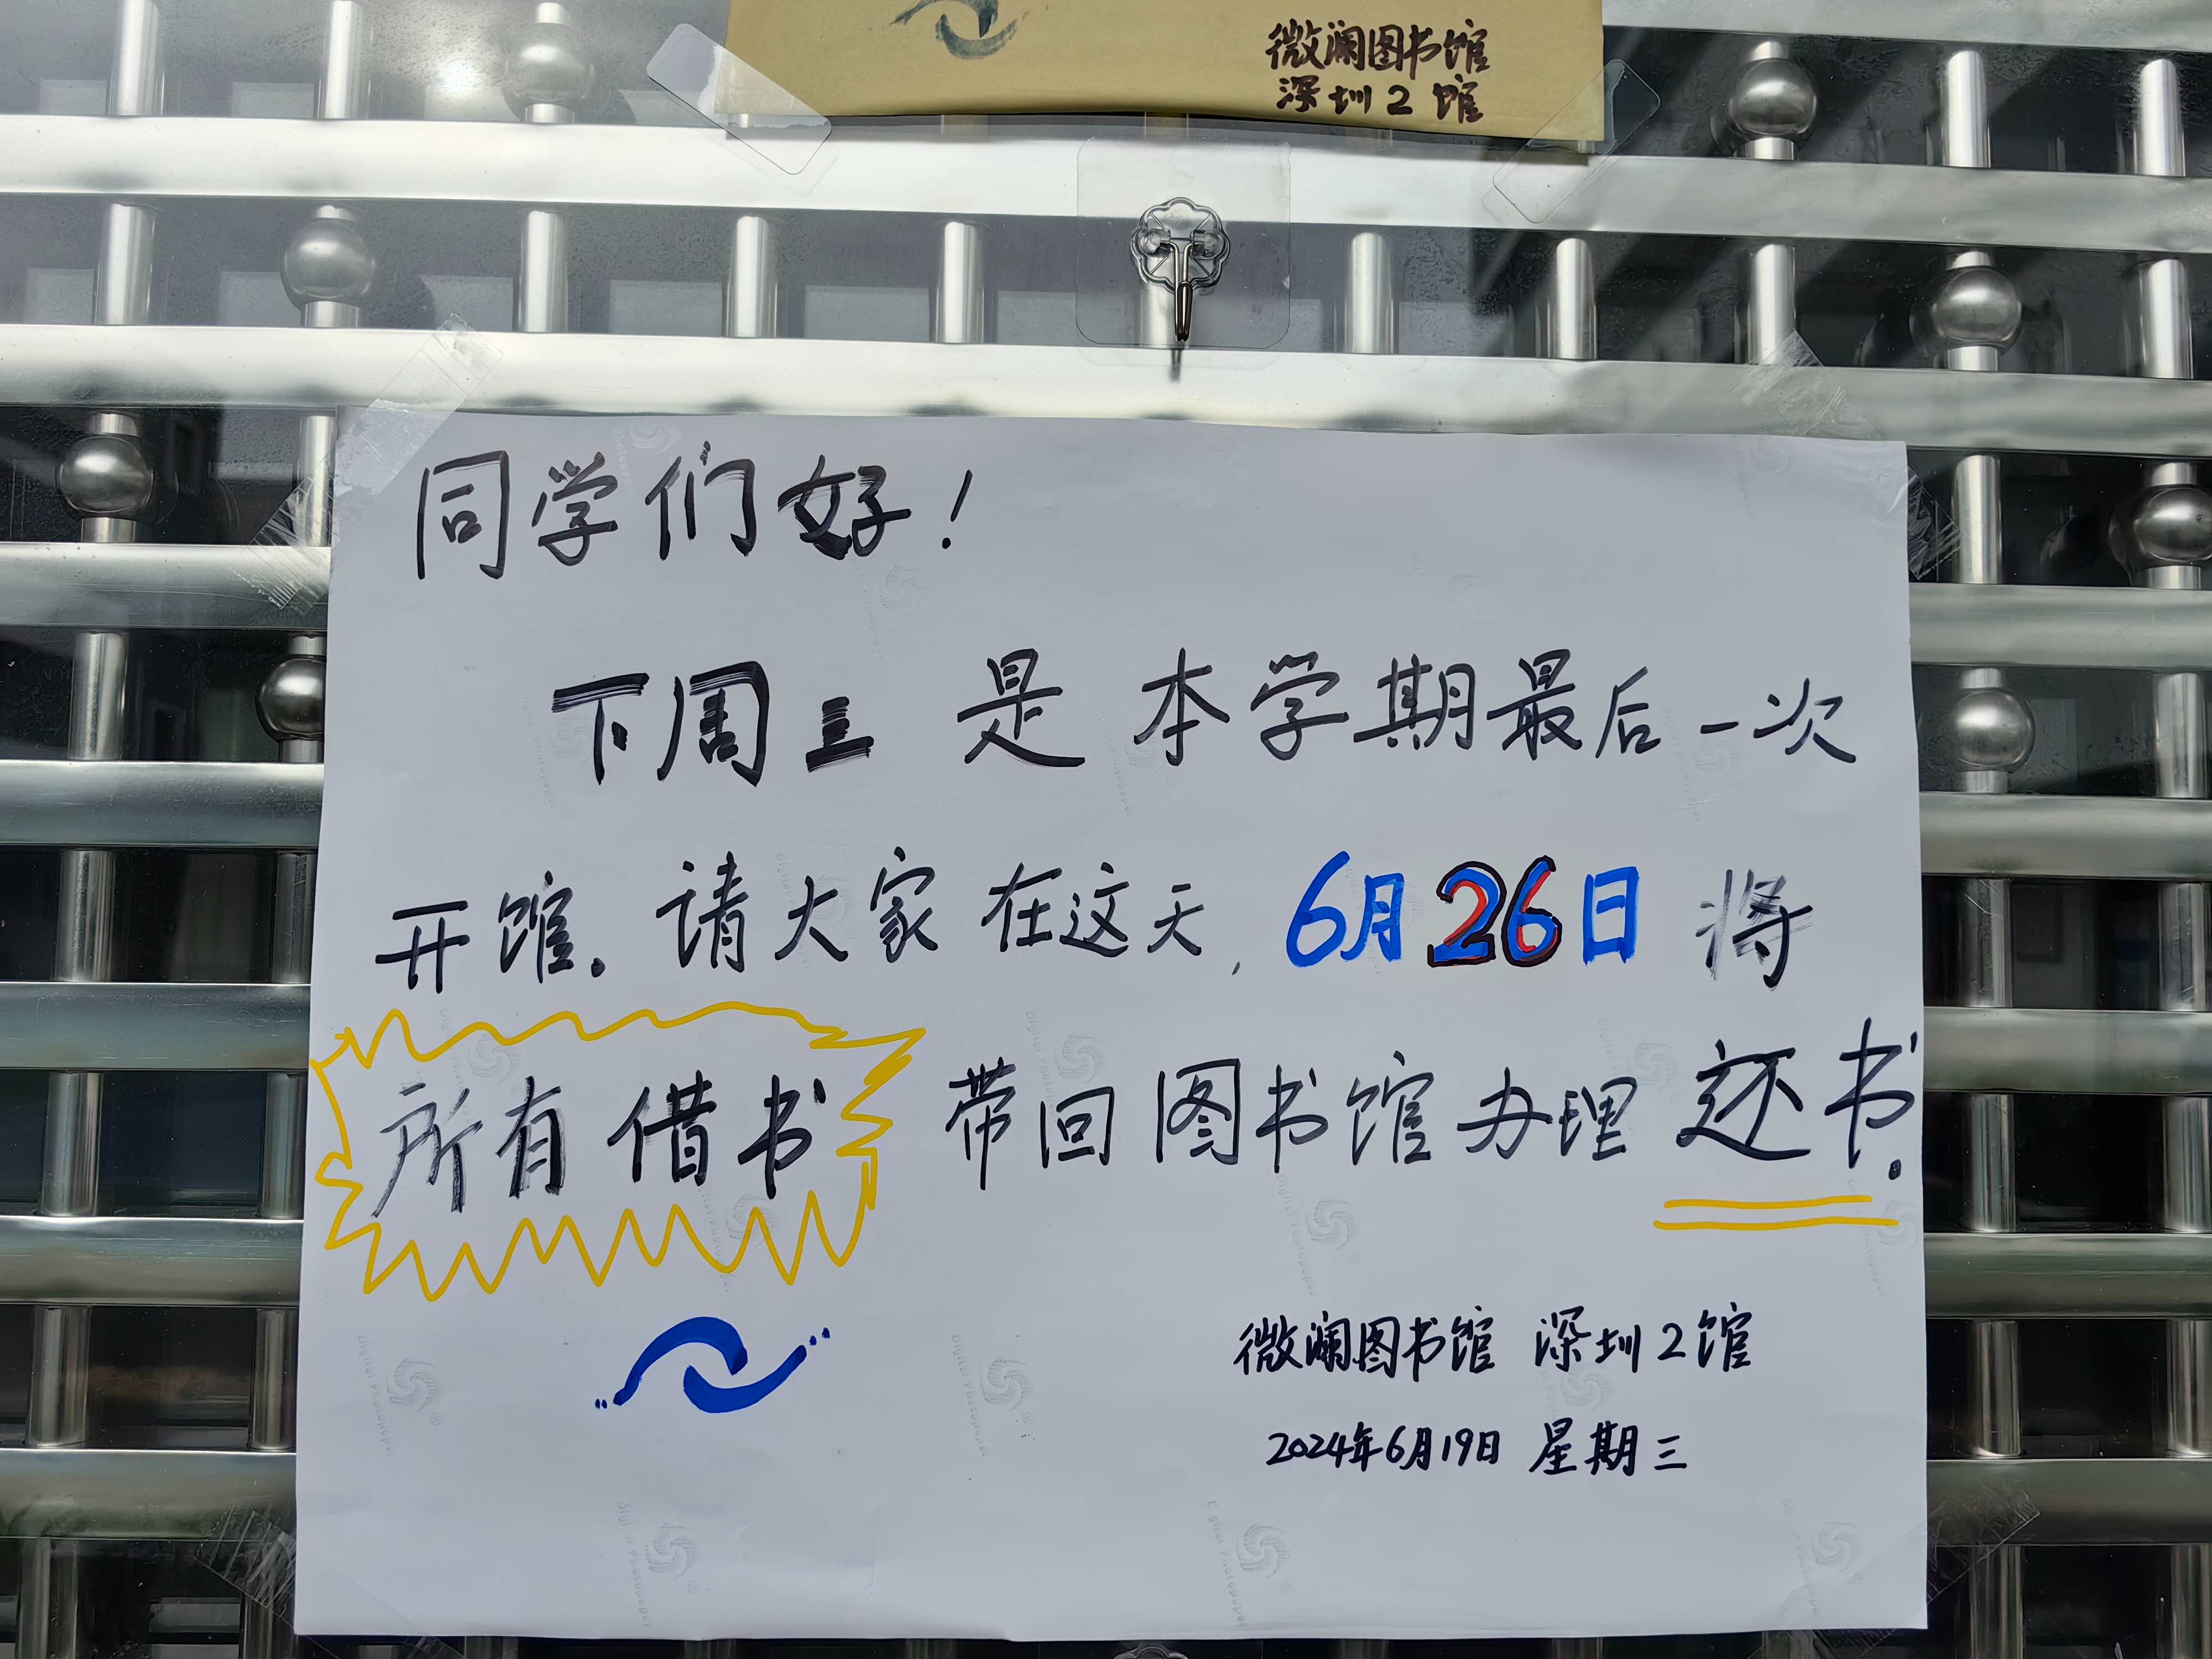 微澜图书馆
深圳2馆
同学们好!
下周三是本学期最后一次
开馆.请大家在这天,6月26日将
所有借书带回图书馆办理还书.
微澜图书馆 深圳2馆
2024年6月19日 星期三
Digital Photopaper